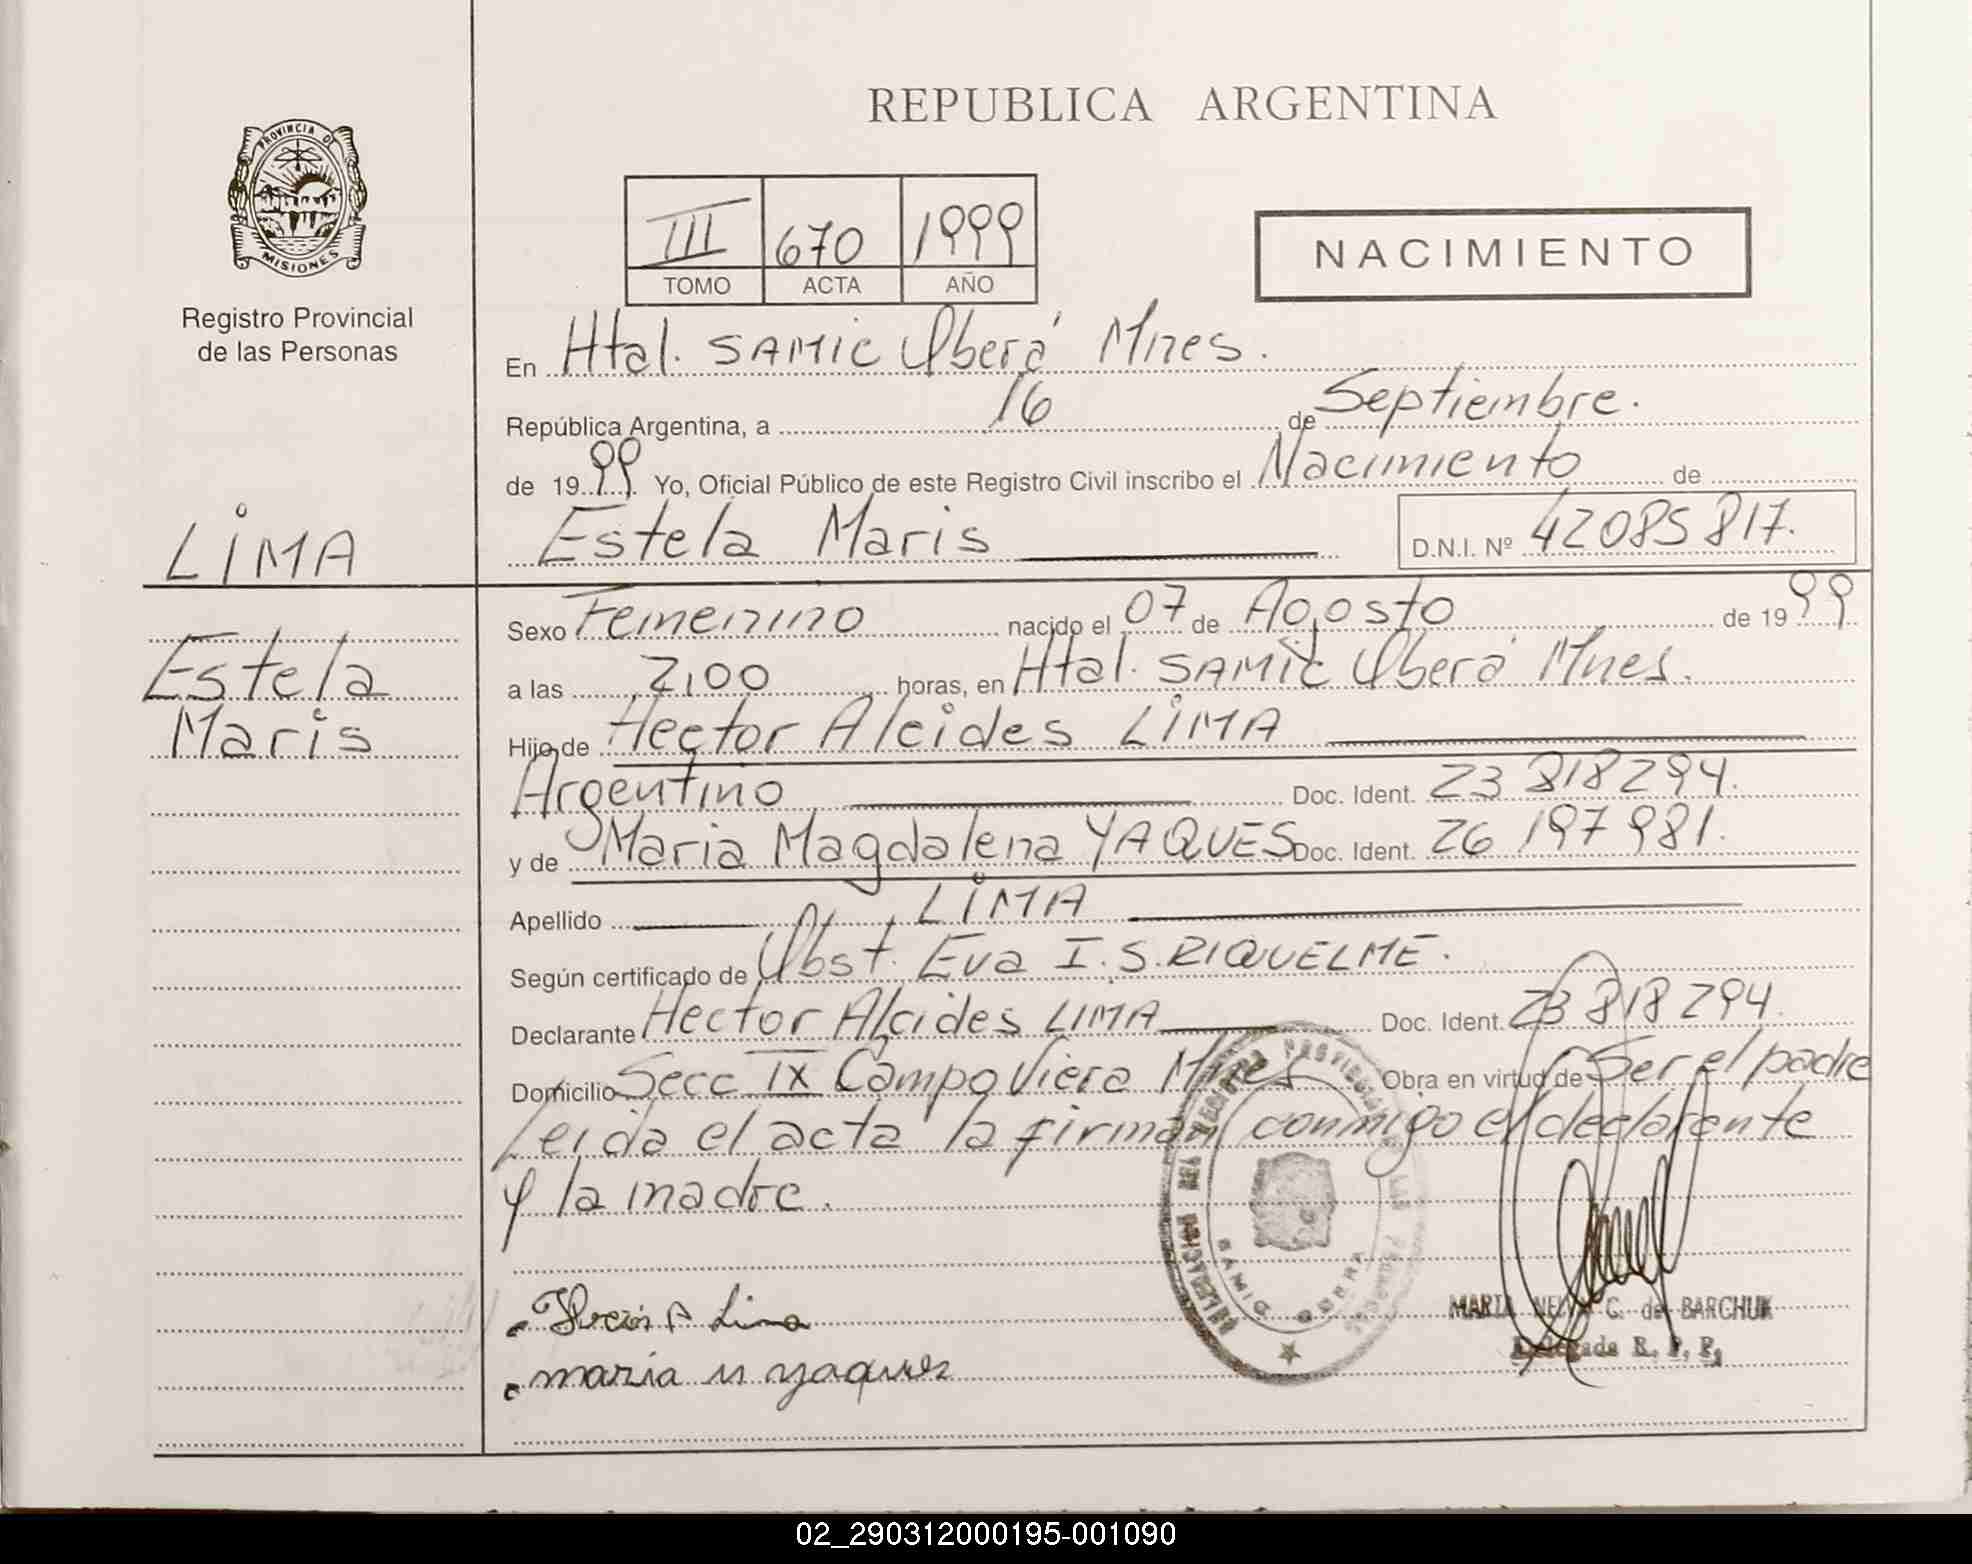 REPUBLICA ARGENTINA
PROVINCIA DE
MISIONES
Registro Provincial
de las Personas
III 670 1999
TOMO ACTA AÑO
NACIMIENTO
En Htal. SAMIC Oberá Mnes.
República Argentina, a 16 de Septiembre.
de 1999. Yo, Oficial Público de este Registro Civil inscribo el Nacimiento de
Estela Maris D.N.I. Nº 42085817.
LIMA
Estela
Maris
Sexo Femenino nacido el 07 de Agosto de 1999
a las 2,00 horas, en Htal. SAMIC Oberá Mnes.
Hijo de Hector Alcides LIMA
Argentino Doc. Ident. 23 818294.
y de Maria Magdalena YAQUES Doc. Ident. 26 197981.
Apellido LIMA
Según certificado de Obst. Eva I.S. RIQUELME.
Declarante Hector Alcides LIMA Doc. Ident. 23 818 294.
Domicilio Secc IX Campo Viera Mnes Obra en virtud de Ser el padre
Leida el acta la firman conmigo el declarante
y la madre.
A Lima
maria m yaques
MARIA C. de BARCHUK
Delegada R. P. P.
02_290312000195-001090